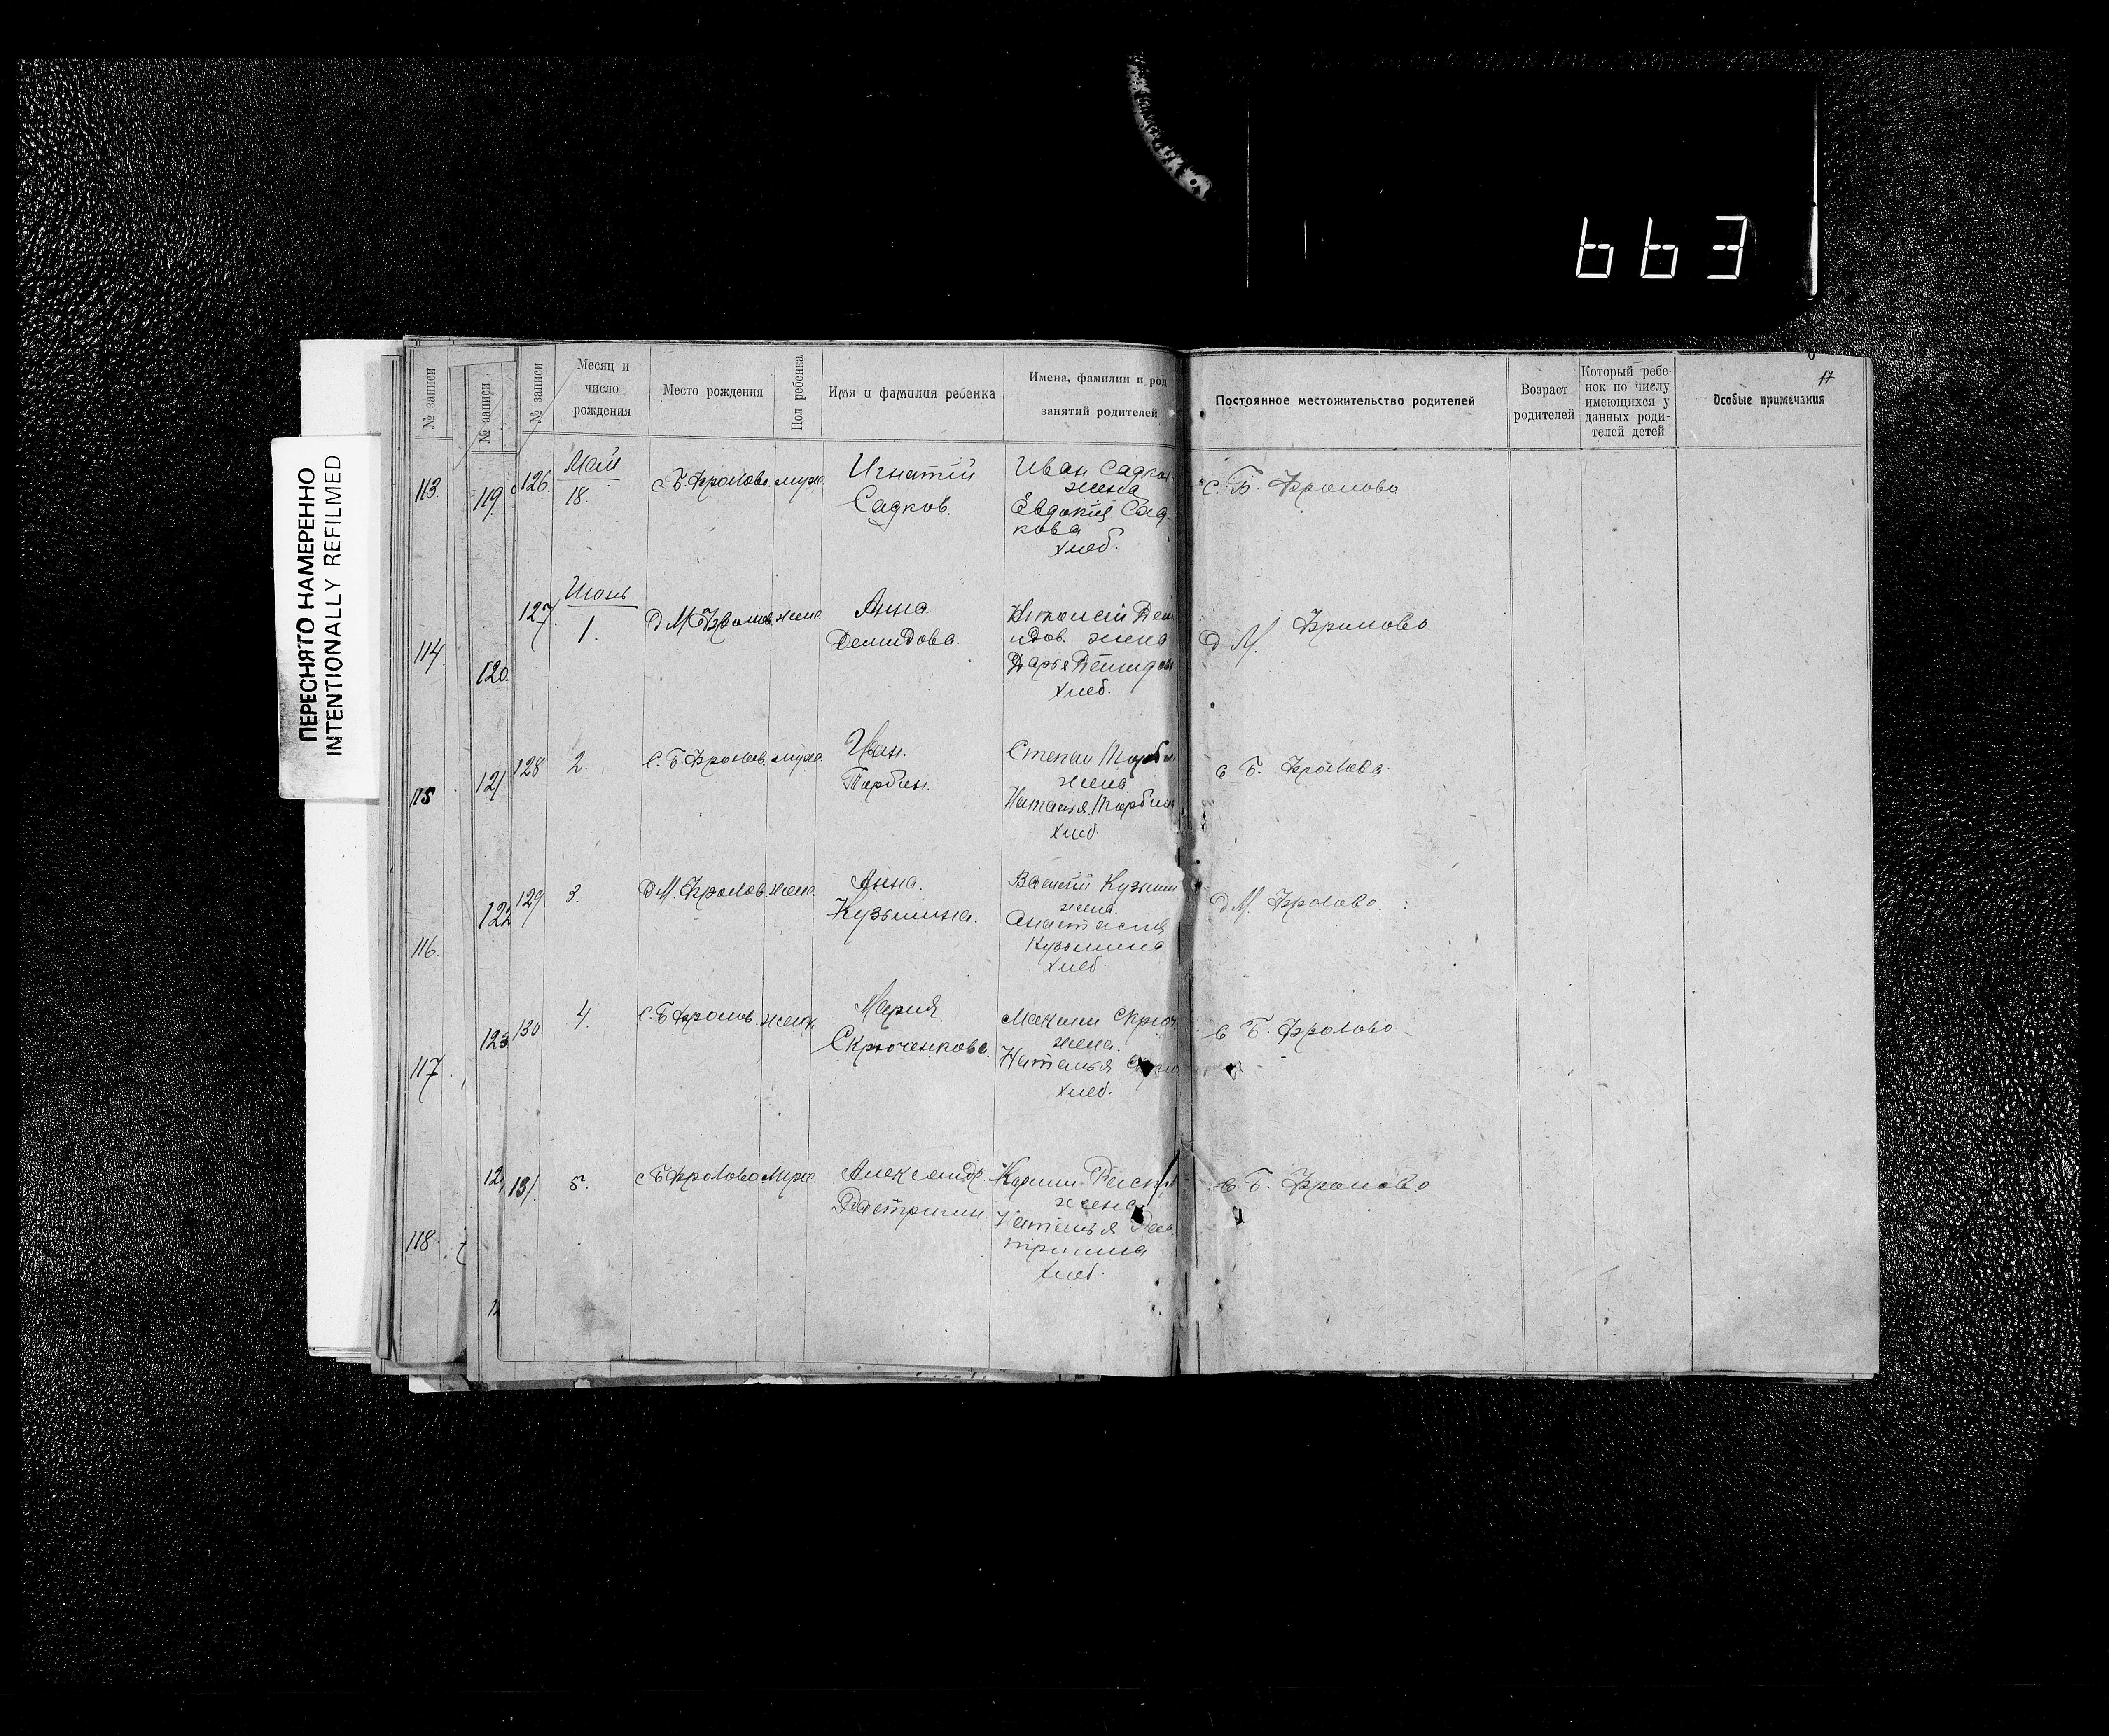 663
ПЕРЕСНЯТО НАМЕРЕННО
INTENTIONALLY REFILMED
17
№ записи
№ записи
№ записи
Месяц и число рождения
Место рождения
Пол ребенка
Имя и фамилия ребенка
Имена, фамилии и род занятий родителей
Постоянное местожительство родителей
Возраст родителей
Который ребенок по числу имеющихся у данных родителей детей
Особые примечания
113.
119
126.
Май
18.
с. Б. Фролово.
муж.
Игнатий
Садков.
Иван Садков
жена
Евдокия Сад-
кова
хлеб.
с. Б. Фролово
114.
120.
127.
Июнь
1.
Д М Фролов.
жен.
Анна
Демидова.
жена
Дарья Демидова
хлеб.
д М. Фролово
115
121
128
2.
с. Б. Фролов.
муж.
Иван.
Тарбин.
Степан
жена
Наталья
хлеб.
с Б. Фролово
116.
122
129
3.
Д М. Фролов.
жен.
Анна.
Кузьмина.
Кузьмин
жена.
Анастасия
Кузьмина
хлеб.
д М. Фролово.
117.
123
130
4.
с. Б Фролов.
жен.
Мария
Скрюченкова.
Максим Скрюч
жена.
Наталья
хлеб.
с Б. Фролово
118.
12
131.
5.
с Б Фролово
Муж.
Александр.
Растригин
жена
Наталья Рас
тригина
хлеб.
с Б. Фролово
12